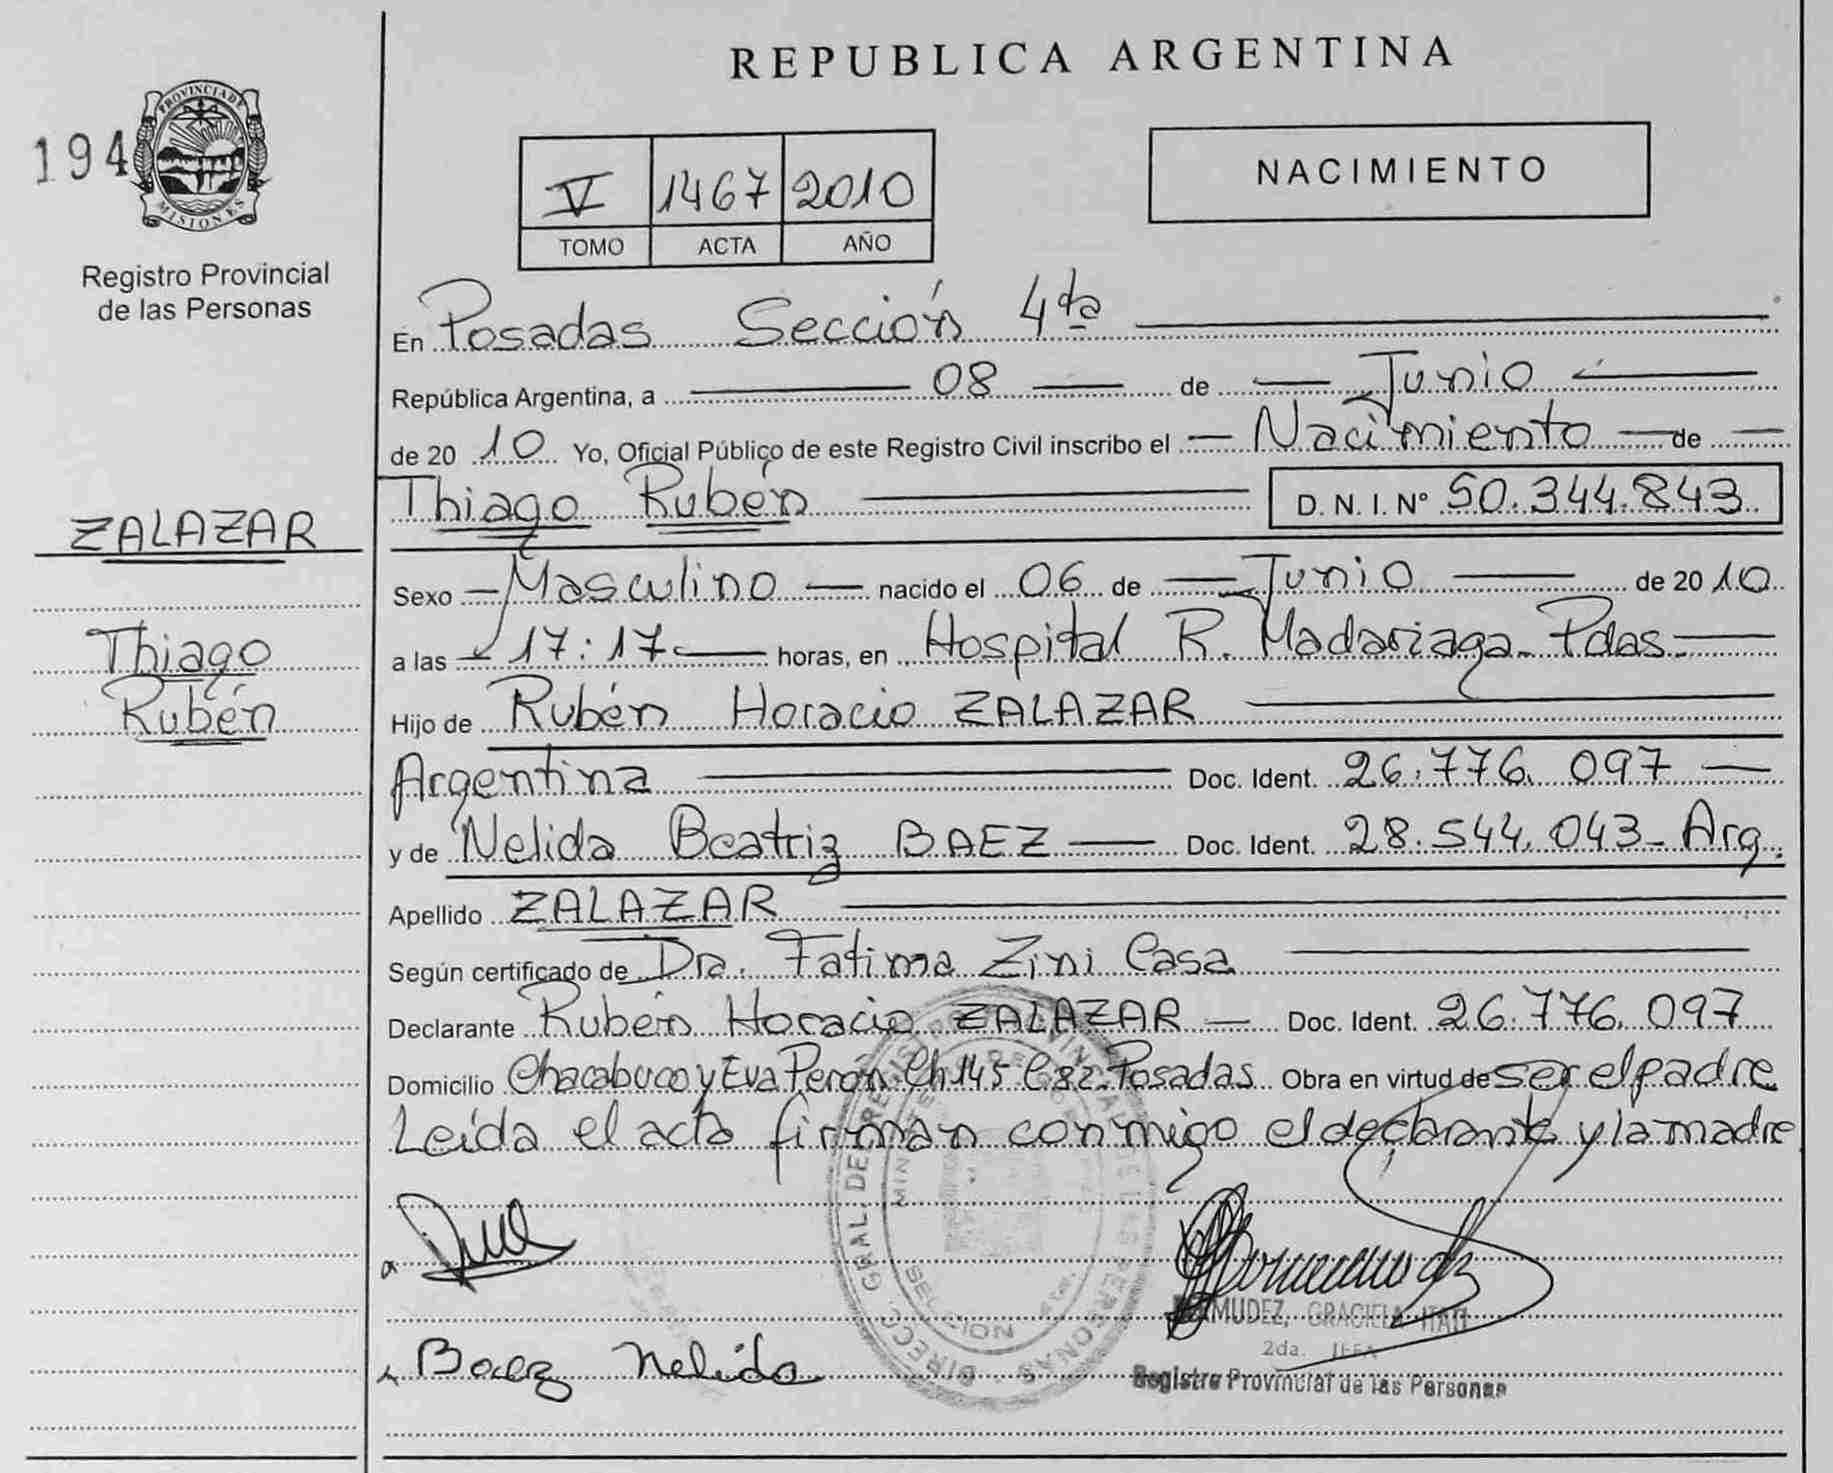 REPUBLICA ARGENTINA
194
PROVINCIA DE
MISIONES
Registro Provincial
de las Personas
V 1467 2010
TOMO ACTA AÑO
NACIMIENTO
En Posadas Sección 4ta
República Argentina, a 08 de Junio
de 2010 Yo, Oficial Público de este Registro Civil inscribo el Nacimiento de
Thiago Rubén D.N.I. Nº 50.344.843
ZALAZAR
Thiago
Rubén
Sexo Masculino nacido el 06 de Junio de 2010
a las 17:17 horas, en Hospital R. Madariaga - Pdas.
Hijo de Rubén Horacio ZALAZAR
Argentina Doc. Ident. 26.776.097
y de Nelida Beatriz BAEZ Doc. Ident. 28.544.043 - Arg.
Apellido ZALAZAR
Según certificado de Dra. Fatima Zini Casa
Declarante Rubén Horacio ZALAZAR Doc. Ident. 26.776.097
Domicilio Chacabuco y Eva Perón Ch 145 C 82 - Posadas Obra en virtud de ser el padre
Leída el acta firman conmigo el declarante y la madre
Baez Nelida
BERMUDEZ, GRACIELA ITATI
2da. JEFA
Registro Provincial de las Personas